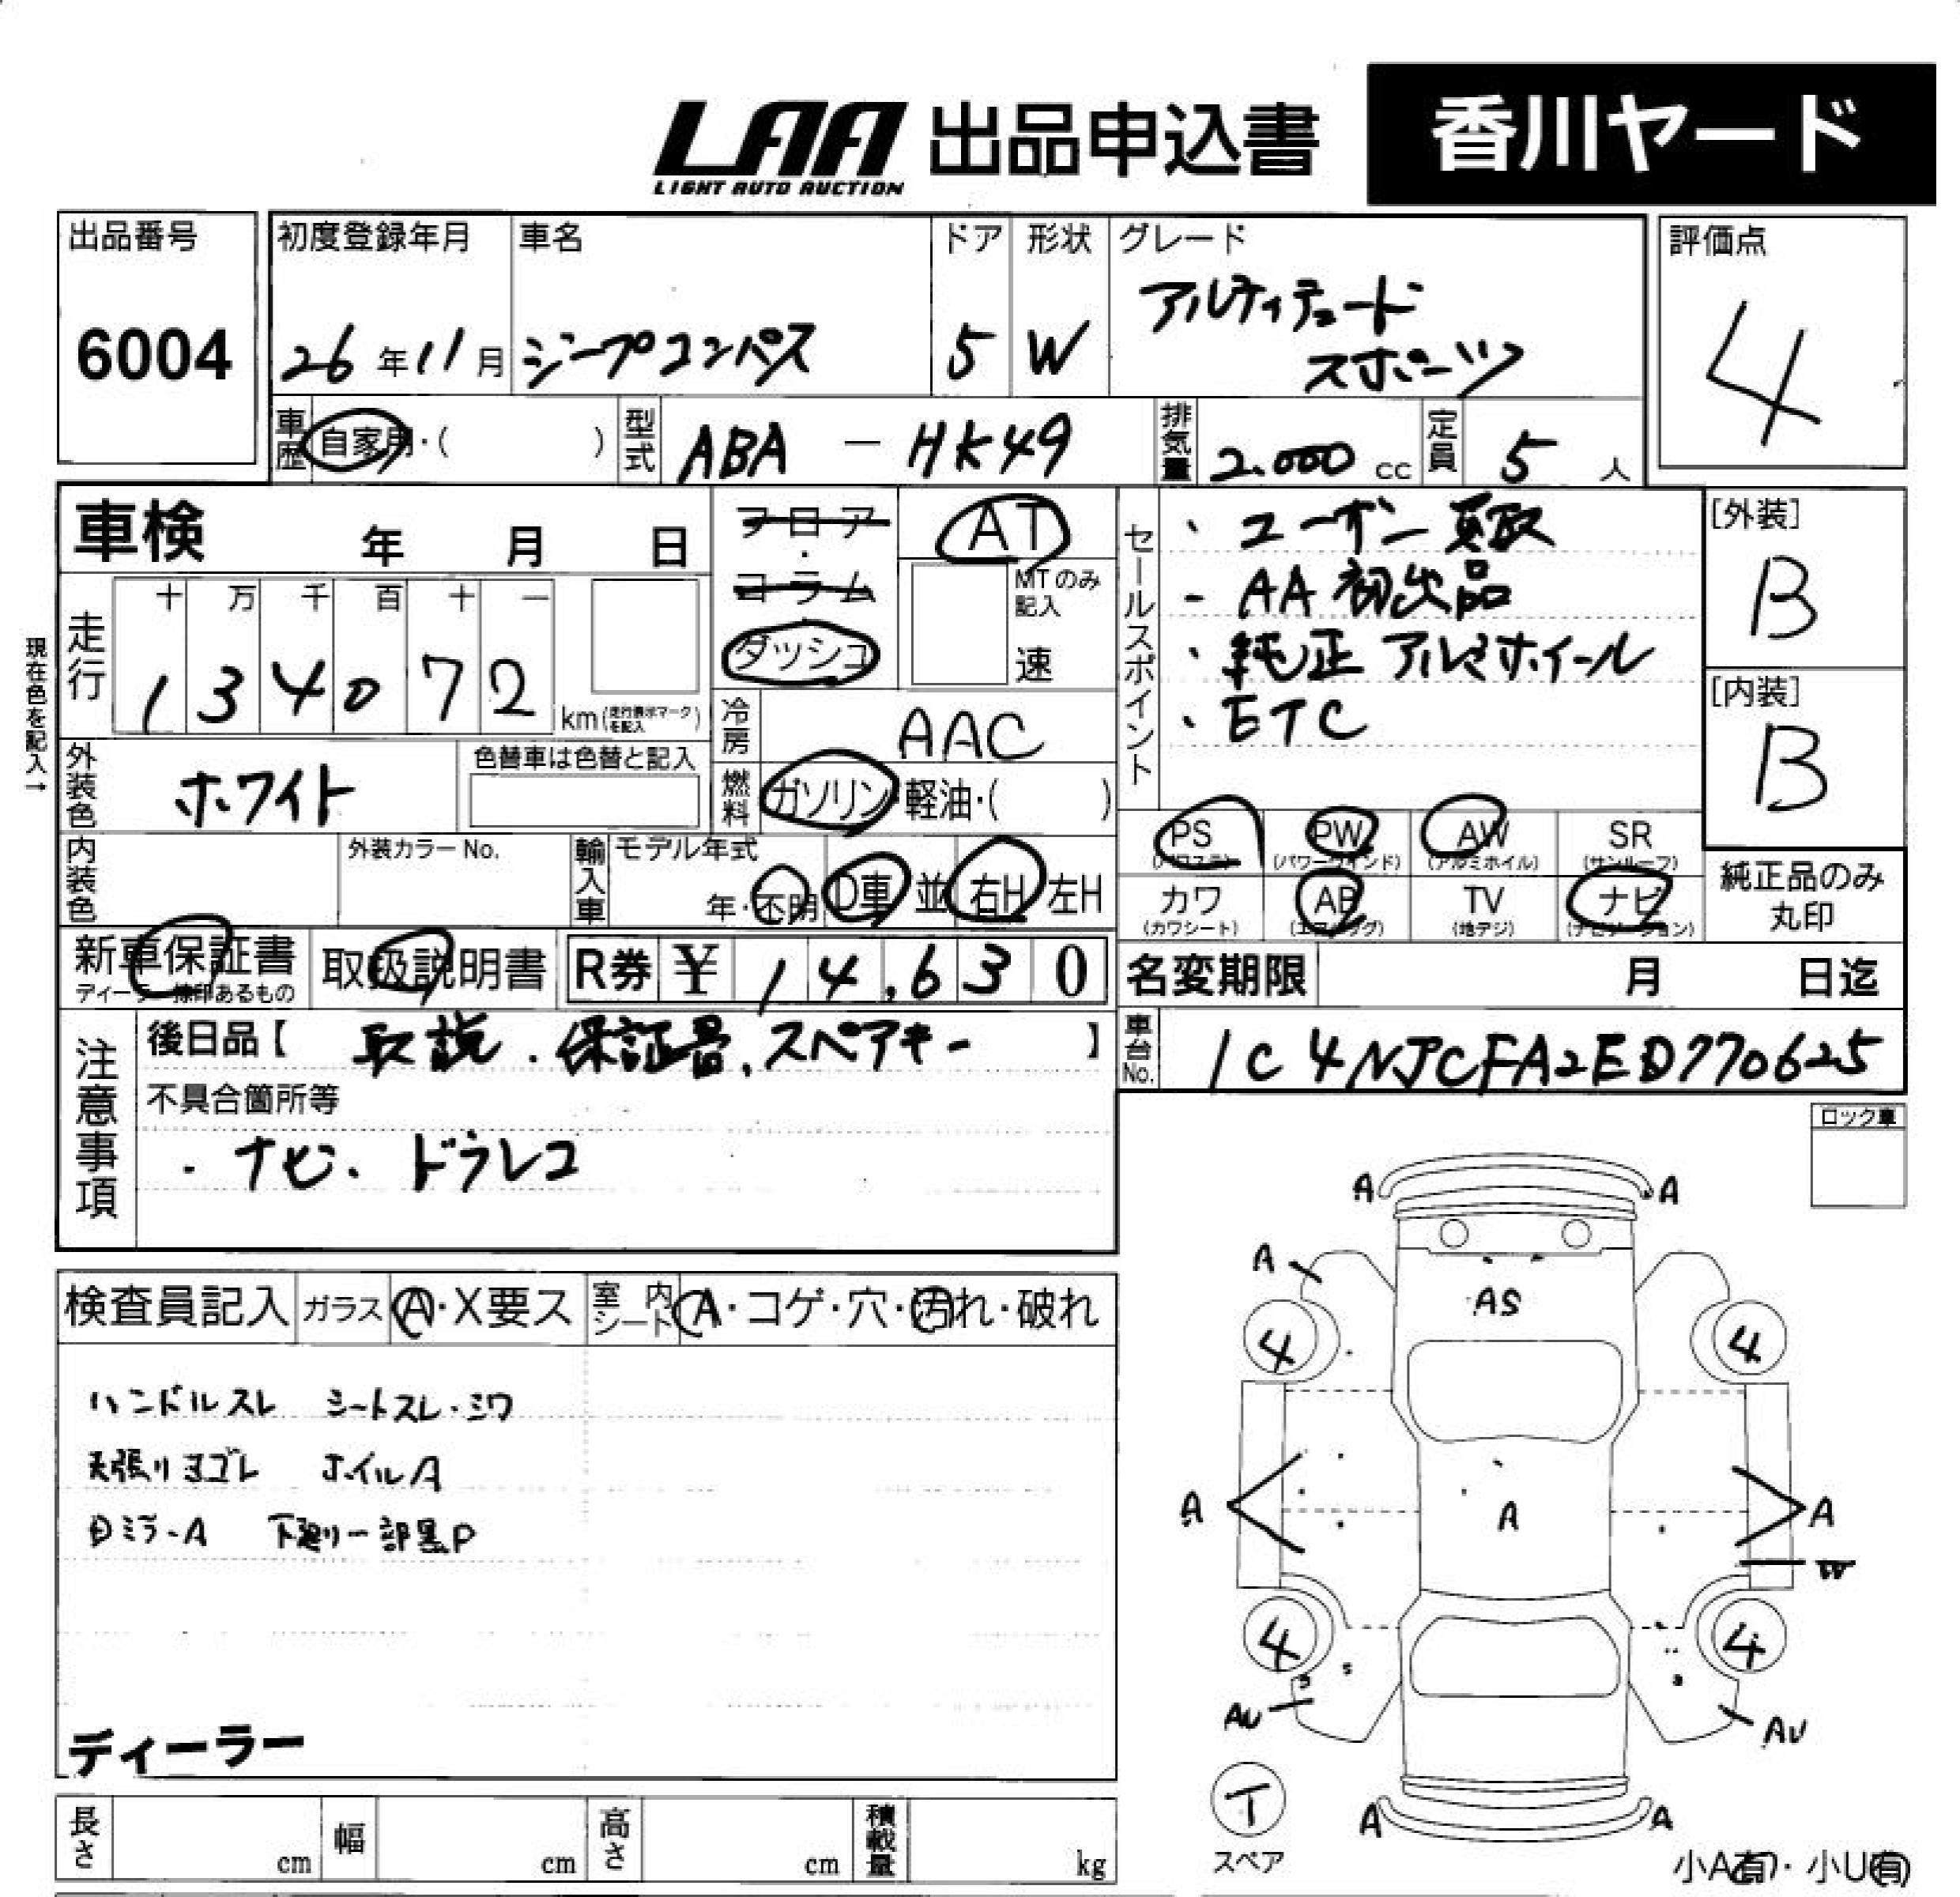 LAA 出品申込書 香川ヤード
LIGHT AUTO AUCTION
出品番号 初度登録年月 車名 ドア 形状 グレード 評価点
6004 26年11月 ジープコンパス 5 W アルティチュード
スポーツ 4
車歴 自家用・( ) 型式 ABA － HK49 排気量 2.000 cc 定員 5 人
車検 年 月 日 フロア・コラム ダッシュ AT
MTのみ記入 速
走行 十 万 千 百 十 一
1 3 4 0 7 2 km(走行表示マークを記入)
現在色を記入→
冷房 AAC
外装色 ホワイト 色替車は色替と記入
燃料 ガソリン・軽油・( )
内装色 外装カラー No. 輸入車 モデル年式 年・不明 D車 並 右H 左H
セールスポイント
・ユーザー買取
- AA初出品
・純正アルミホイール
・ETC
[外装] B
[内装] B
PS (パワステ) PW (パワーウインド) AW (アルミホイル) SR (サンルーフ)
カワ (カワシート) AB (エアバッグ) TV (地デジ) ナビ (ナビゲーション)
純正品のみ
丸印
新車保証書 ディーラー捺印あるもの 取扱説明書 R券 ¥ 14,630
名変期限 月 日迄
車台No. 1C4NJCFA2ED770625
注意事項
後日品【 取説.保証書.スペアキー 】
不具合箇所等
・ナビ.ドラレコ
ロック車
検査員記入 ガラス A・X要ス 室内シート A・コゲ・穴・汚れ・破れ
ハンドルスレ シートスレ・シワ
天張りヨゴレ ホイルA
Dミラ-A 下廻り一部黒P
ディーラー
A A
A
AS
4 4
A A A
W
4 4
AU AU
T
スペア
A A
小A有・小U有
長さ cm 幅 cm 高さ cm 積載量 kg